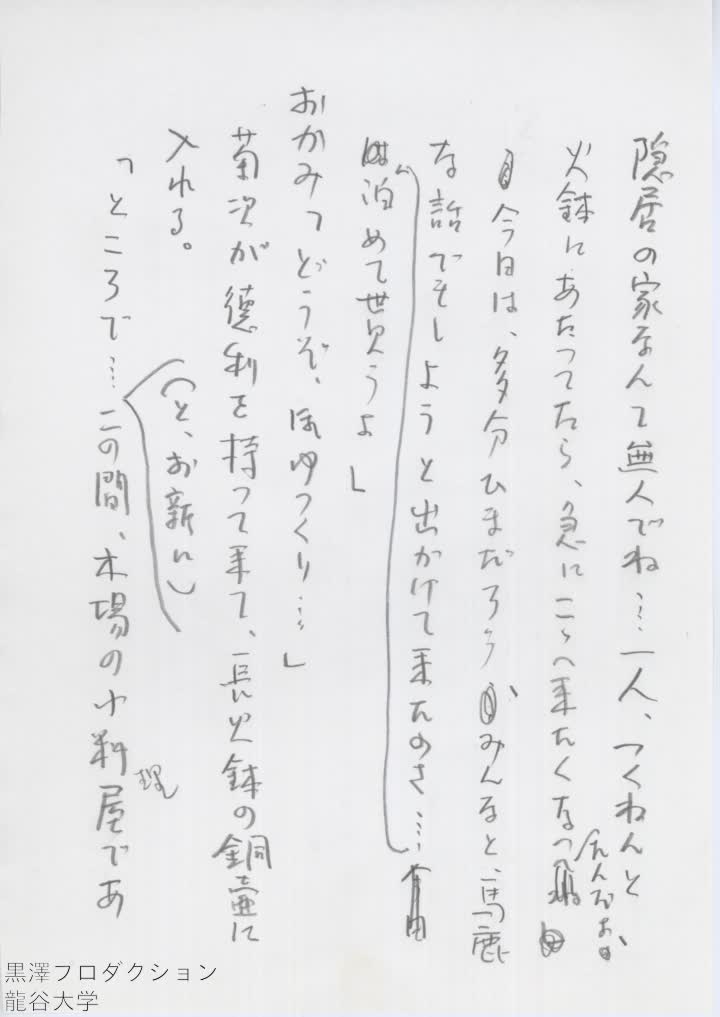 隠居の家なんて無人でね…一人、つくねんと
火鉢にあたってたら、急にこゝへ来たくなっ
たんだよ
今日は、多分ひまだろう、みんなと、馬鹿
な話でもしようと出かけて来たのさ…
泊めて貰うよ」
おかみ「どうぞ、ほゆっくり…」
菊次が徳利を持って来て、長火鉢の銅壷に
入れる。
(と、お新に)
「ところで…この間、木場の小料理屋であ
黒澤プロダクション
龍谷大学